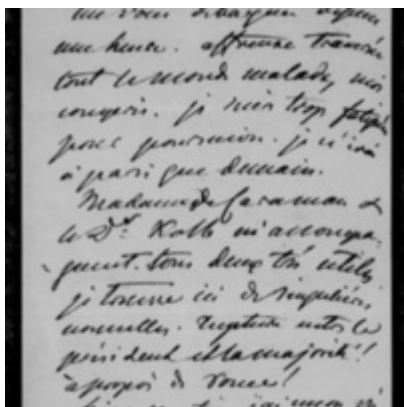 me voici débarquée depuis
une heure. affreuse traversée
tout le monde malade, moi
compris. je suis trop fatiguée
pour poursuivre. je n'irai
à paris que demain.
Madame de Caraman &
le Dr Kolb m'accompa-
gnent. tous deux très utiles
je trouve ici de singulières
nouvelles. Rupture entre le
président et la majorité!
à propos de